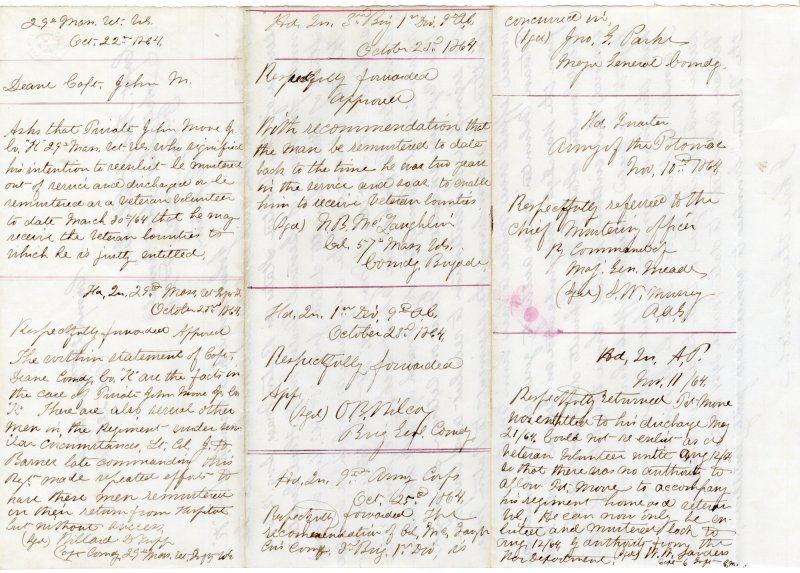 29th Mass. Vet. Vols.
Oct. 22nd 1864.
Deane Capt. John M.
Asks that Private John Mone Jr.
Co. "K" 29th Mass. Vet. Vols. who signified
his intention to reenlist be mustered
out of service and discharged or be
remustered as a Veteran Volunteer
to date March 30th/64 that he may
receive the Veteran bounties to
which he is justly entitled.
Hd. Qrs. 29th Mass. Vet.
October 23rd 1864.
Respectfully forwarded Approved
The within statement of Capt.
Deane Comdg. Co. "K" are the facts in
the case of Private John Mone Jr. Co.
"K" There are also several other
men in the Regiment under simi-
lar circumstances, Lt. Col. J. H.
Barnes late commanding this
Regt. made repeated efforts to
have these men remustered
on their return from
but without success,
(Sgd) Willard D. Tripp
Capt. Comdg. 29th Mass. Vet.
Hd. Qrs. 3rd Brig 1st Div. 9th A.C.
October 23rd 1864,
Respectfully forwarded
Approved
With recommendation that
the man be remustered to date
back to the time he was two years
in the service and so as to enable
him to receive Veteran bounties.
(Sgd) N. B. McLaughlin
Col. 57th Mass. Vols.
Comdg. Brigade.
Hd. Qrs. 1st Div, 9th A.C.
October 25th 1864,
Respectfully forwarded
App.
(Sgd) O. B. Wilcox
Brig Genl. Comdg
Hd. Qrs. 9th Army Corps
Oct. 25th 1864.
Respectfully forwarded The
recomendation of Col. McLaugh-
lin Comdg. 3rd Brig. 1st Div, is
concurred in,
(Sgd) Jno. G. Parke
Major General Comdg.
Hd. Quarter
Army of the Potomac
Nov. 10th 1864
Respectfully referred to the
Chief Mustering officer
By Command of
Maj. Gen. Meade
(Sgd)
A.A.G.
Hd. Qrs. A.P.
Nov. 11/64.
Respectfully returned Pvt Mone
was entitled to his discharge May
21/64, Could not re enlist as a
Veteran Volunteer until Aug 12/64
so that there was no authority to
allow Pvt. Mone to accompany
his regiment home as a veteran
Vol, He can now only be en-
listed and mustered back to
Aug. 12/64 by authority from the
War Department. (Sgd) W. W. Sanders
Capt. 6